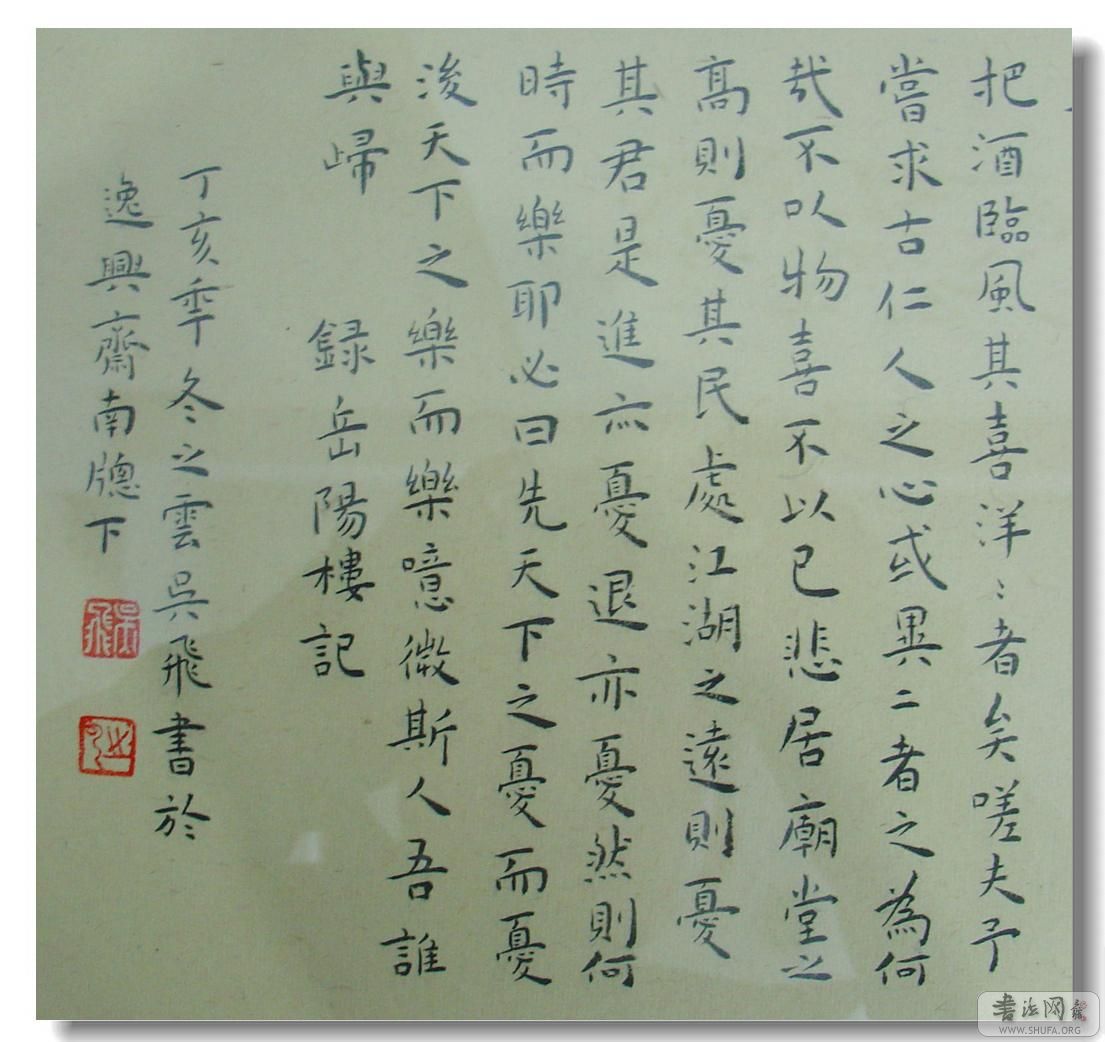 把酒臨風其喜洋〻者矣嗟夫予
嘗求古仁人之心或異二者之為何
哉不以物喜不以已悲居廟堂之
高則憂其民處江湖之遠則憂
其君是進亦憂退亦憂然則何
時而樂耶必曰先天下之憂而憂
後天下之樂而樂噫微斯人吾誰
與歸 録岳陽樓記
丁亥年冬之雲吳飛書於
逸興齋南牕下
吳飛
書法网
WWW.SHUFA.ORG